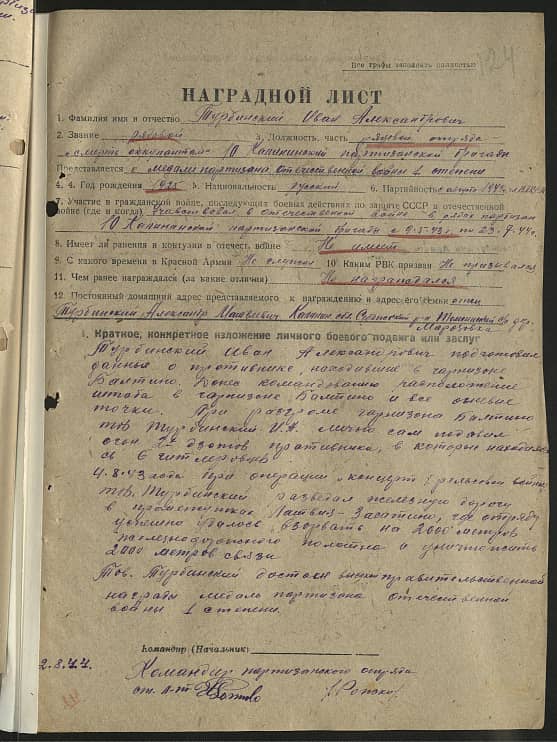 124
Все графы заполнять полностью
НАГРАДНОЙ ЛИСТ
1. Фамилия имя и отчество Турбинский Иван Александрович
2. Звание рядовой 3. Должность, часть рядовой отряда
"смерть оккупантам" 10 Калининский партизанской бригады
Представляется к медали партизана отечественной войны 1 степени
4. 4. Год рождения 1925 5. Национальность русский 6. Партийность с 1944
7. Участие в гражданской войне, последующих боевых действиях по защите СССР и отечественной
войне (где и когда) Участвовал в отечественной войне в рядах партизан
10 Калининской партизанской бригады с 9.5.43г. по 23.7.44г.
8. Имеет ли ранения и контузии в отечест. войне Не имеет
9. С какого времени в Красной Армии Не служил 10 Каким РВК призван Не призывался
11. Чем ранее награждался (за какие отличия) Не награждался
12. Постоянный домашний адрес представляемого к награждению и адрес его семьи отец
Турбинский Александр Калинин. обл. р-н дер.
Морозовка
I. Краткое, конкретное изложение личного боевого подвига или заслуг
Турбинский Иван Александрович подготовил
данные о противнике, находившие в гарнизоне
Балтино. Донес командованию расположение
штаба в гарнизоне Балтино и все огневые
точки. При разгроме гарнизона Балтино
тов Турбинский И.А. лично сам подавил
огон 2х дзотов противника, в которых находил
ся 6 гитлеровцев
4.8.43 года При операции "концерт" рельсовой войны
тов. Турбинский разведал железную дорогу
в промежутках Латвия-Заситино, где отряду
успешно удалось взорвать на 2000 метров
железнодорожного полотна и уничтожить
2000 метров связи
Тов. Турбинский достоен правительственной
награды медаль партизана отечественной
войны 1 степени.
Командир (Начальник)
2.8.44.
Командир партизанского отряда
ст. л-т